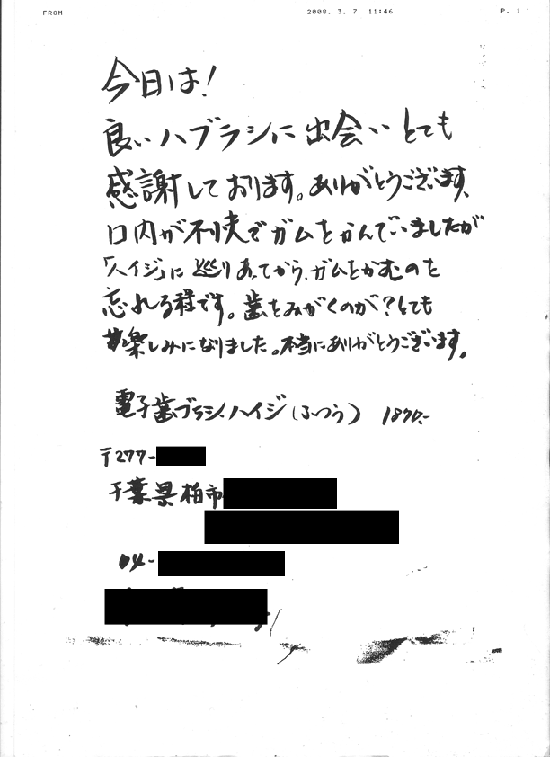 FROM 2009. 3. 7 11:46 P. 1
今日は!
良いハブラシに出会いとても
感謝しております。ありがとうございます、
口内が不快でガムをかんでいましたが
「ハイジ」に巡りあってから、ガムをかむのを
忘れる程です。歯をみがくのが?とても
楽しみになりました。本当にありがとうございます。
電子歯ブラシハイジ(ふつう) 1890.-
〒277-
千葉県柏市
04-